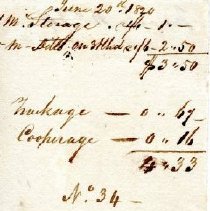 June 20th 1820
1 M. Storage 2/6 - 1 -
- m - Ditto on 3 Hhds 2/6 - 2 " 50
$3 " 50
Truckage — 0 " 67
Cooperage — 0 " 16
4 " 33
No. 34 -